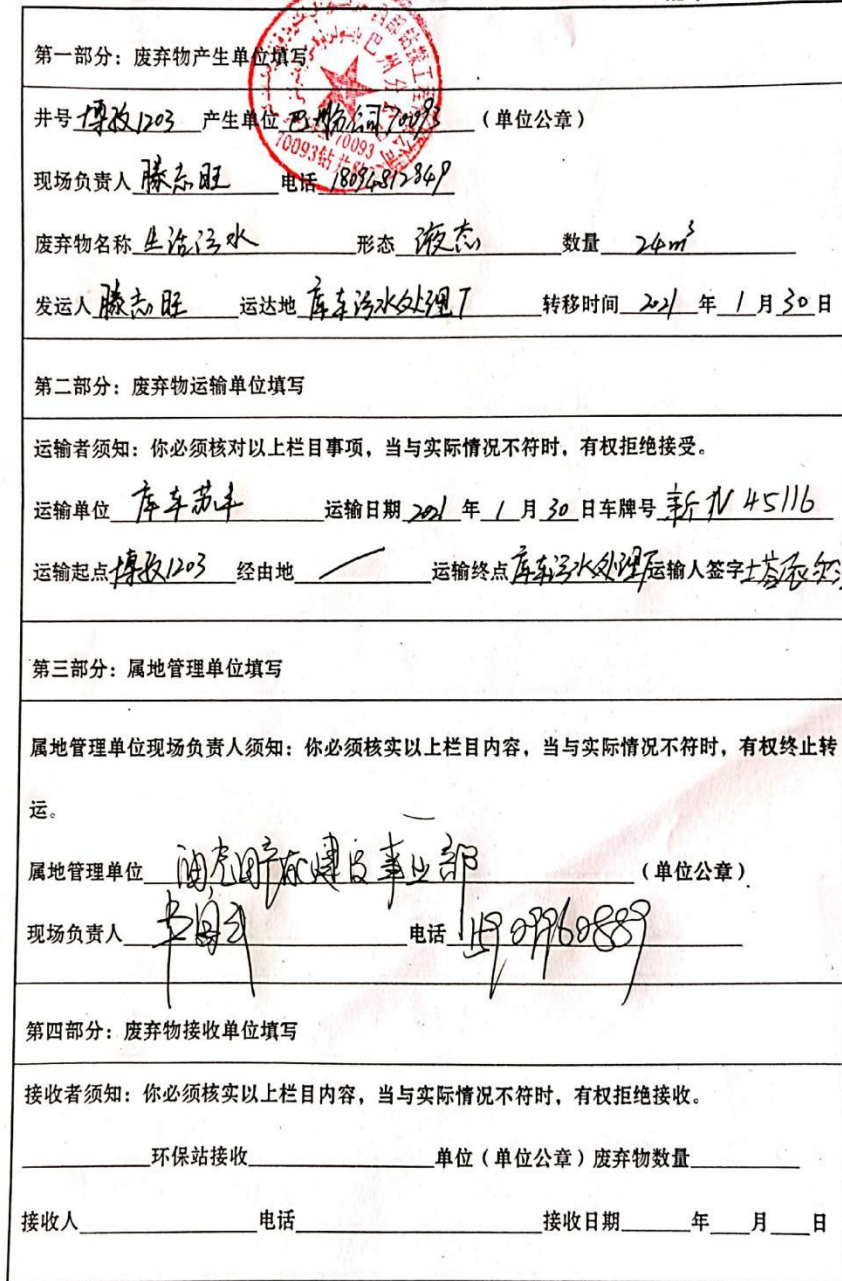 第一部分：废弃物产生单位填写
井号 博孜1203 产生单位 巴州分公司70093 （单位公章）
现场负责人 滕志旺 电话 18094812849
废弃物名称 生活污水 形态 液态 数量 24m³
发运人 滕志旺 运达地 库车污水处理厂 转移时间 2021 年 1 月 30 日
第二部分：废弃物运输单位填写
运输者须知：你必须核对以上栏目事项，当与实际情况不符时，有权拒绝接受。
运输单位 库车苏丰 运输日期 2021 年 1 月 30 日车牌号 新N 45116
运输起点 博孜1203 经由地 运输终点 库车污水处理厂 运输人签字
第三部分：属地管理单位填写
属地管理单位现场负责人须知：你必须核实以上栏目内容，当与实际情况不符时，有权终止转
运。
属地管理单位 油气田产能建设事业部 （单位公章）
现场负责人 电话
第四部分：废弃物接收单位填写
接收者须知：你必须核实以上栏目内容，当与实际情况不符时，有权拒绝接收。
环保站接收 单位（单位公章）废弃物数量
接收人 电话 接收日期 年 月 日